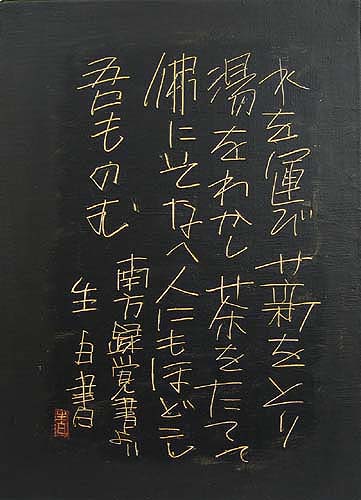 水を運び薪をとり
湯をわかし茶をたてて
佛にそなへ人にもほどこし
吾ものむ
南方録覚書より
生白書